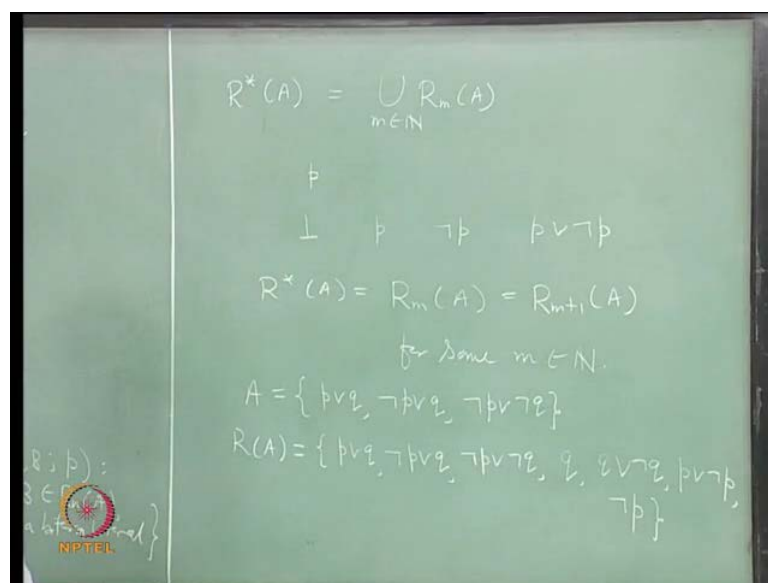 R*(A) = ⋃ R_m(A)
m∈ℕ
p
⊥ p ¬p p∨¬p
R*(A) = R_m(A) = R_{m+1}(A)
for some m ∈ ℕ.
A = { p∨q, ¬p∨q, ¬p∨¬q}
R(A) = { p∨q, ¬p∨q, ¬p∨¬q, q, q∨¬q, p∨¬p,
¬p}
B; p):
NPTEL